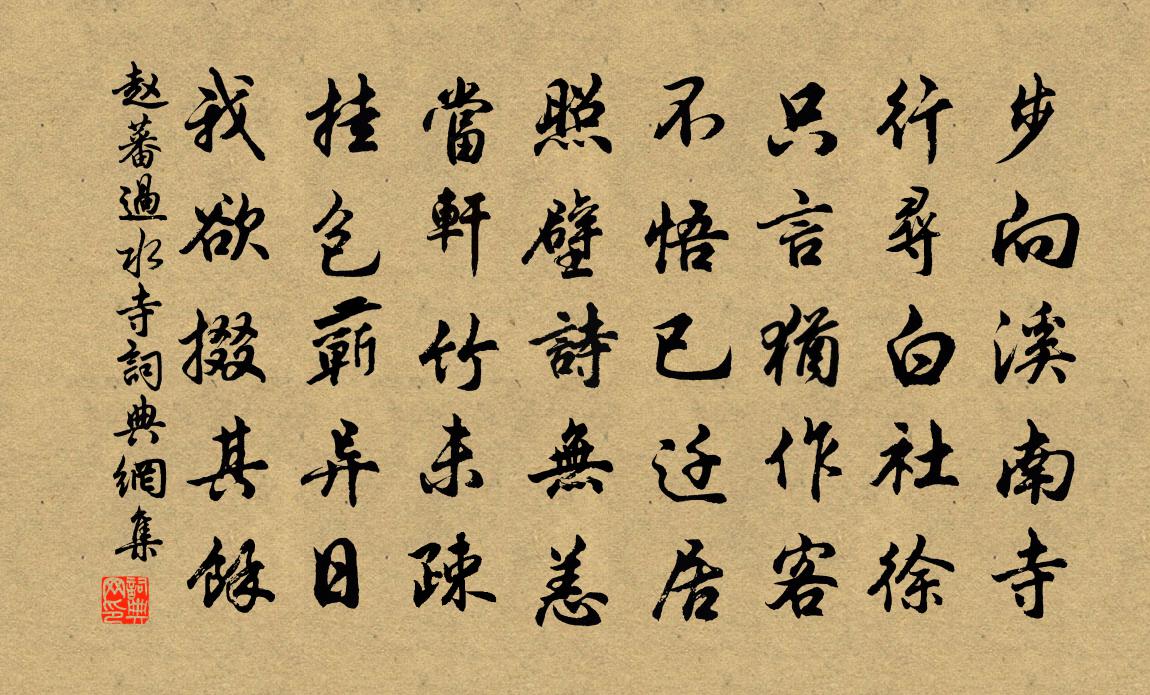 步向溪南寺
行尋白社徐
只言猶作客
不悟已迁居
照壁詩無恙
當軒竹未疎
挂包蘄异日
我欲掇其餘
赵蕃過水寺詞典網集
詞典网印